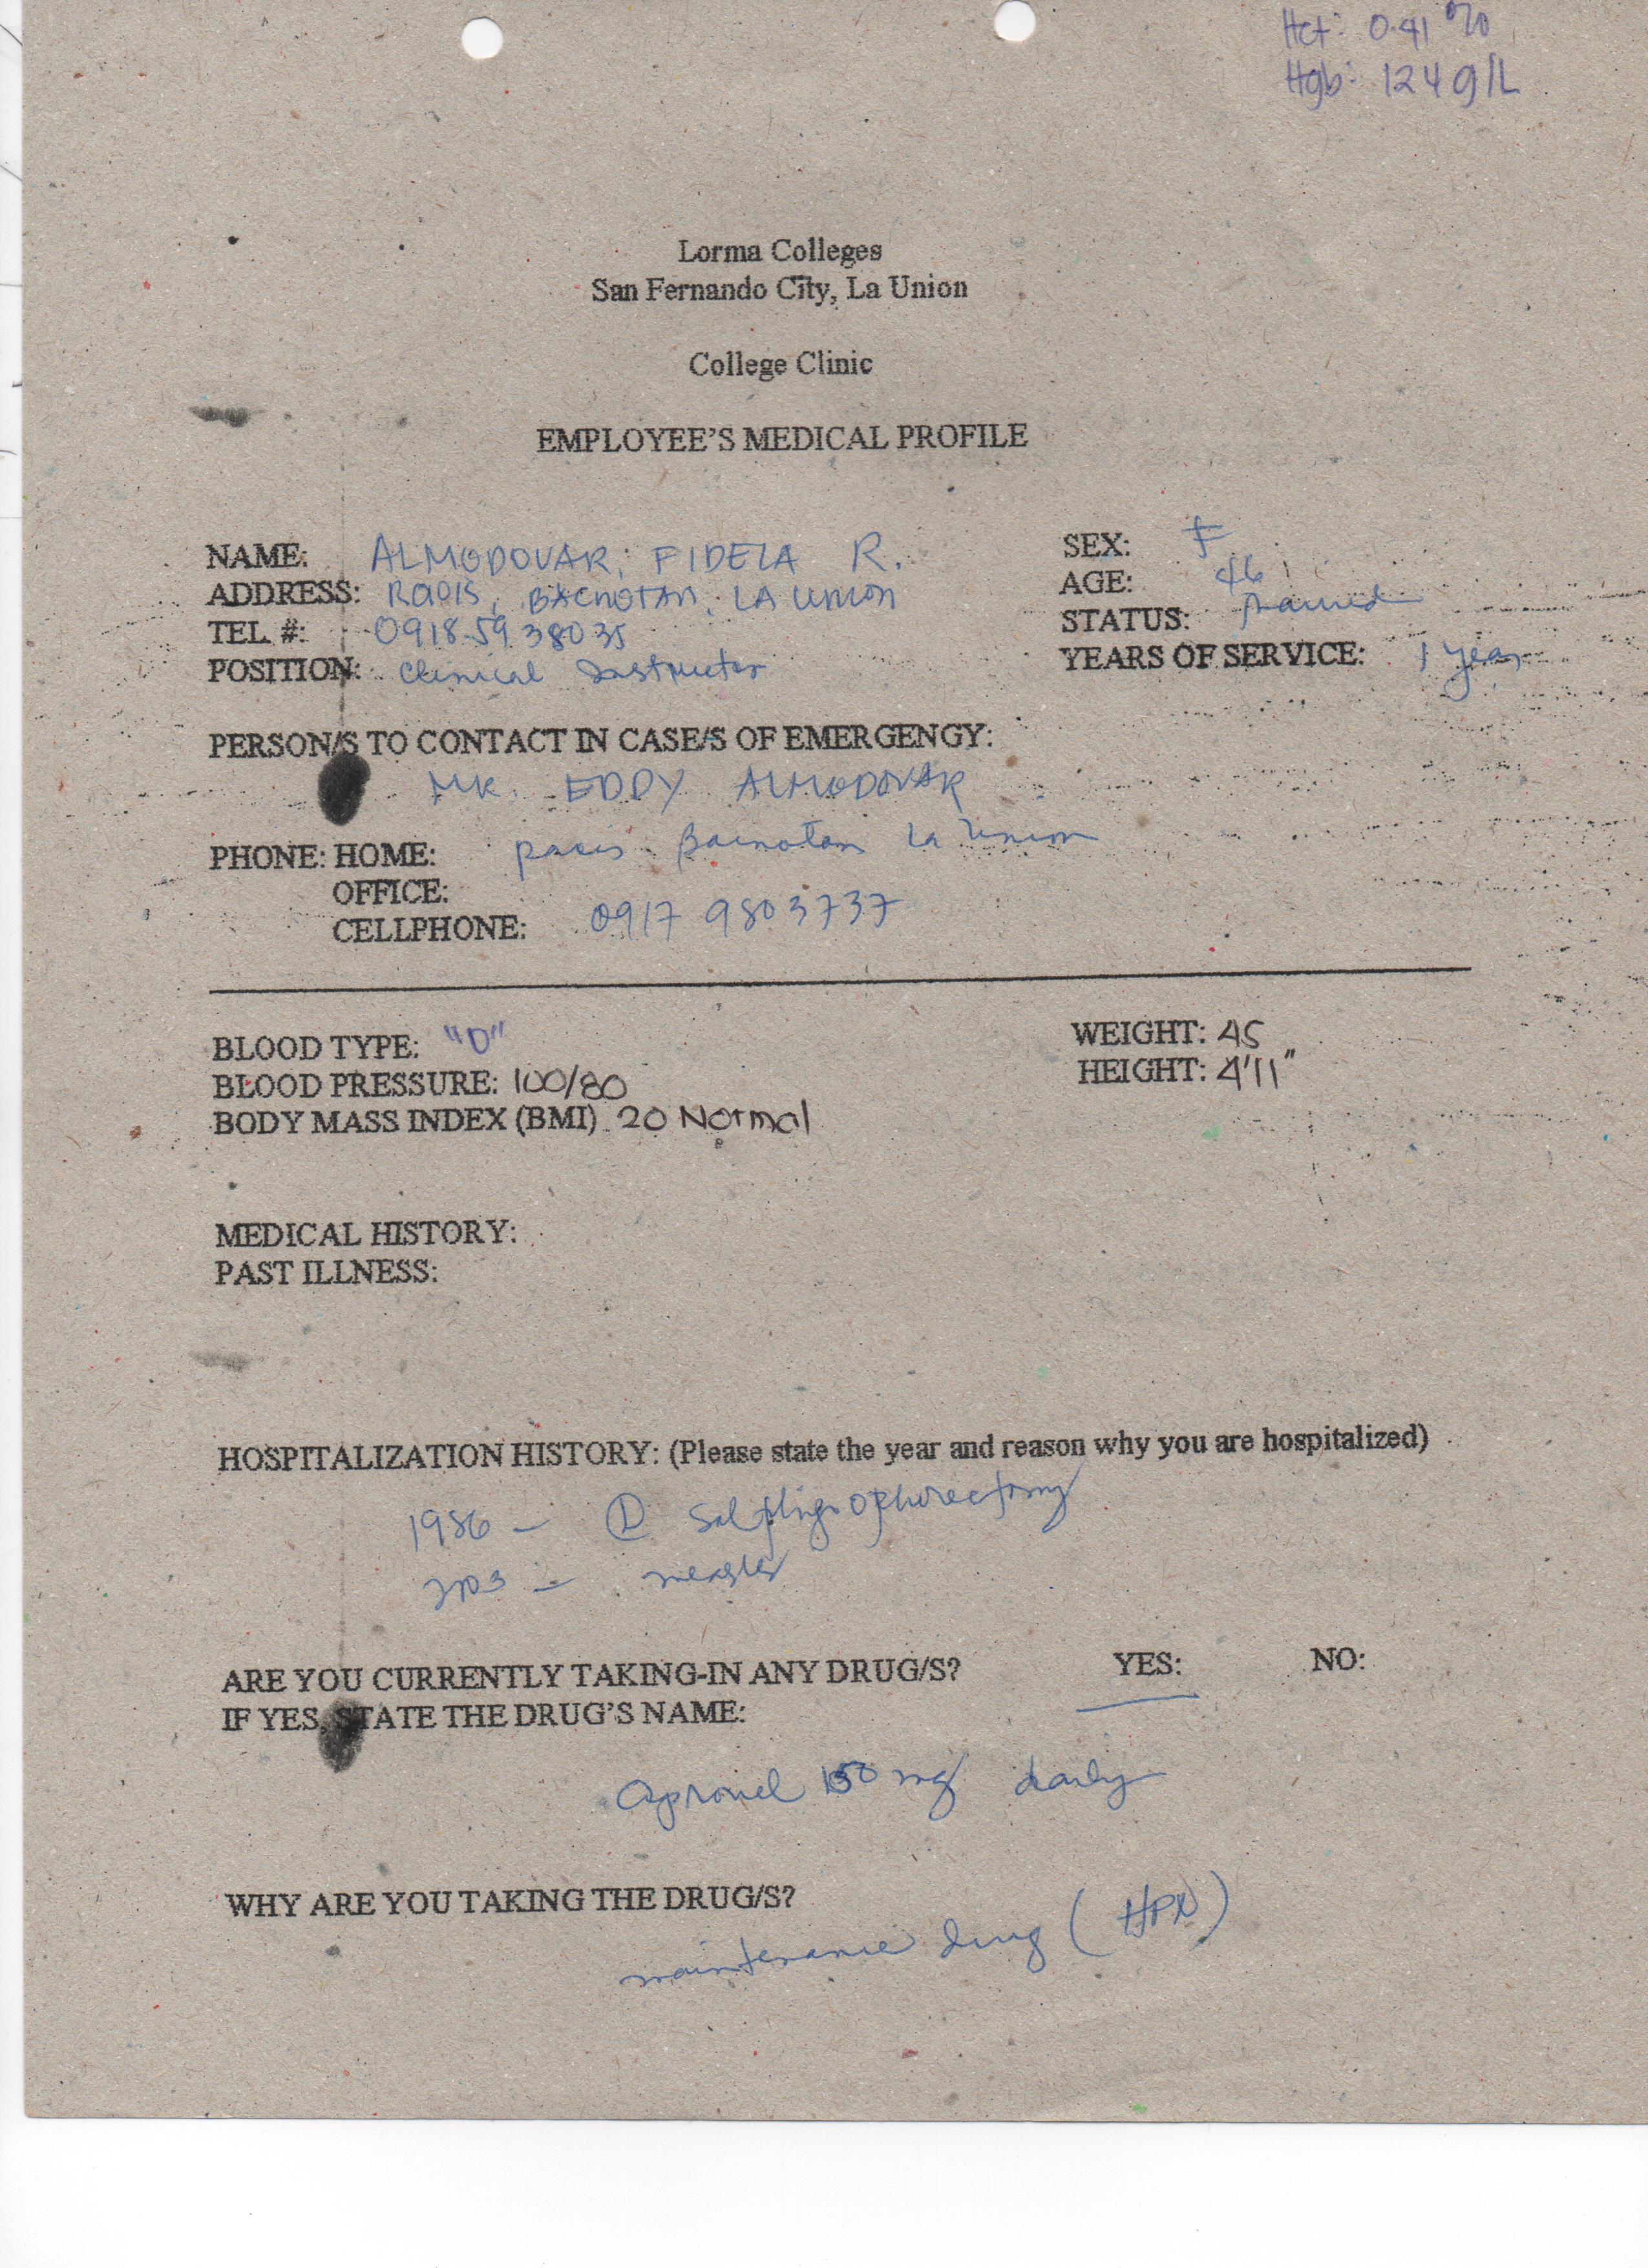 Hct: 0.41 %
Hgb: 124 g/L
Lorma Colleges
San Fernando City, La Union
College Clinic
EMPLOYEE'S MEDICAL PROFILE
NAME: ALMODOVAR, FIDELA R.
SEX: F
ADDRESS: BACNOTAN, LA UNION
AGE: 46
TEL #: 0918-5938035
STATUS: married
POSITION: Clinical Instructor
YEARS OF SERVICE: 1 year
PERSON/S TO CONTACT IN CASE/S OF EMERGENGY:
MR. EDDY ALMODOVAR
PHONE: HOME: Bacnotan La Union
OFFICE:
CELLPHONE: 0917 9803737
BLOOD TYPE: "O"
WEIGHT: 45
BLOOD PRESSURE: 100/80
HEIGHT: 4'11"
BODY MASS INDEX (BMI) 20 Normal
MEDICAL HISTORY:
PAST ILLNESS:
HOSPITALIZATION HISTORY: (Please state the year and reason why you are hospitalized)
1986 - Salphingophorectomy
2003 - measles
ARE YOU CURRENTLY TAKING-IN ANY DRUG/S? YES: NO:
IF YES, STATE THE DRUG'S NAME:
Aprovel 150 mg daily
WHY ARE YOU TAKING THE DRUG/S?
maintenance drug (HPN)